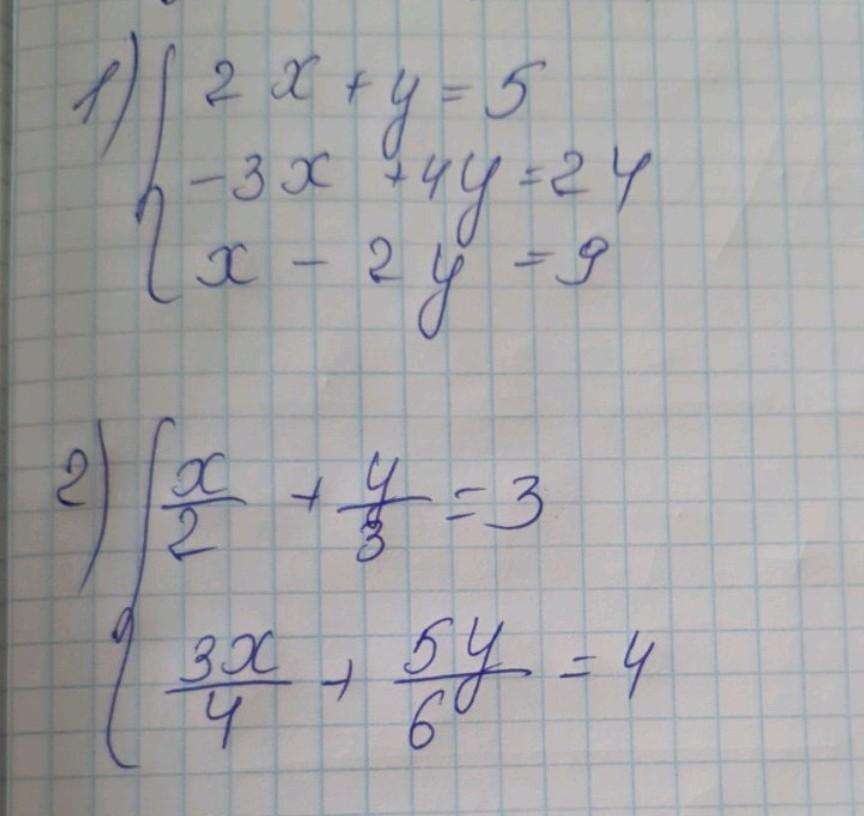 1) { 2x + y = 5
-3x + 4y = 24
x - 2y = 9
2) { x/2 + y/3 = 3
3x/4 + 5y/6 = 4